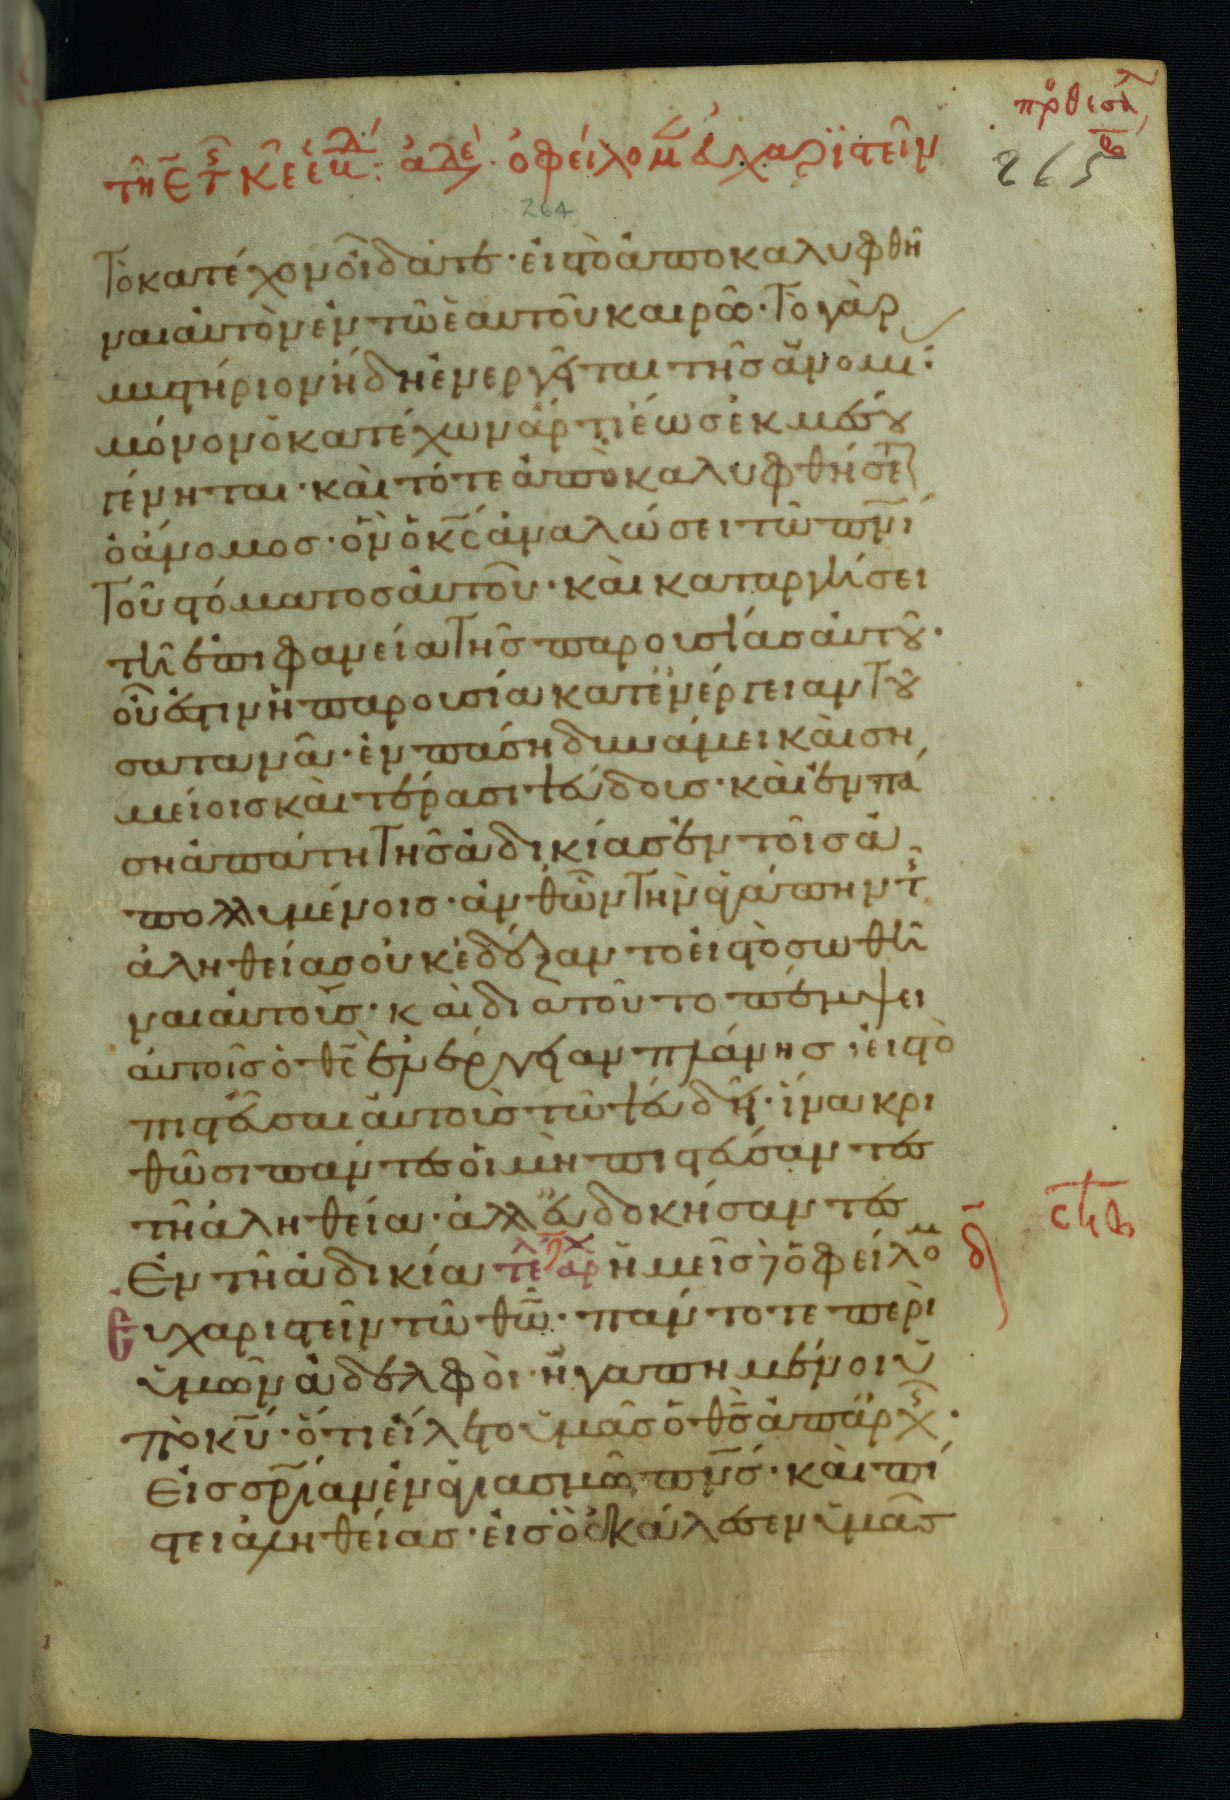 πρ θεσαλ β
τῇ ε τ κε ἑ κλ ἀδελ. ὀφείλομ εὐχαριστεῖν
265
264
Τὸ κατέχον οἴδατε · εἰς τὸ ἀποκαλυφθῆ
ναι αὐτὸν ἐν τῶ ἑαυτοῦ καιρῶ · Τὸ γὰρ
μυστήριον ἤδη ἐνεργεῖται τῆς ἀνομί
μόνον ὁ κατέχων ἄρτι ἕως ἐκ μέσου
γένηται · καὶ τότε ἀποκαλυφθήσετ
ὁ ἄνομος · ὃν ὁ κς ἀναλώσει τῶ πνι
Τοῦ στόματος αὐτοῦ · καὶ καταργήσει
τῆ ἐπιφανεία Τῆς παρουσίας αὐτοῦ ·
οὗ ἐστιν ἡ παρουσία κατ ἐνέργειαν Τοῦ
σατανᾶ · ἐν πάση δυνάμει καὶ ση
μείοις καὶ τέρασι ψεύδους · καὶ ἐν πά
ση ἀπάτη Τῆς ἀδικίας ἐν τοῖς ἀ
πολλυμένοις · ἀνθ ὧν Τὴν ἀγάπην τ
ἀληθείας οὐκ ἐδέξαντο εἰς τὸ σωθῆ
ναι αὐτούς · καὶ διὰ τοῦτο πέμψει
αὐτοῖς ὁ θς ἐνέργειαν πλάνης · εἰς τὸ
πιστεῦσαι αὐτοὺς τῶ ψεύδει · ἵνα κρι
θῶσι πάντες οἱ μὴ πιστεύσαντες
τῆ ἀληθεία · ἀλλ εὐδοκήσαντες
Ἐν τῆ ἀδικία τελ αρχ ἡμεῖς δὲ ὀφείλομ
Εὐχαριστεῖν τῶ θω · πάντοτε περὶ
ὑμῶν ἀδελφοὶ · ἠγαπημένοι ὑ
πὸ κυ · ὅτι εἵλετο ὑμᾶς ὁ θς ἀπ ἀρχ ·
Εἰς σριαν ἐν ἁγιασμῶ πνς · καὶ πί
στει ἀληθείας · εἰς ὃ ἐκάλεσεν ὑμᾶς